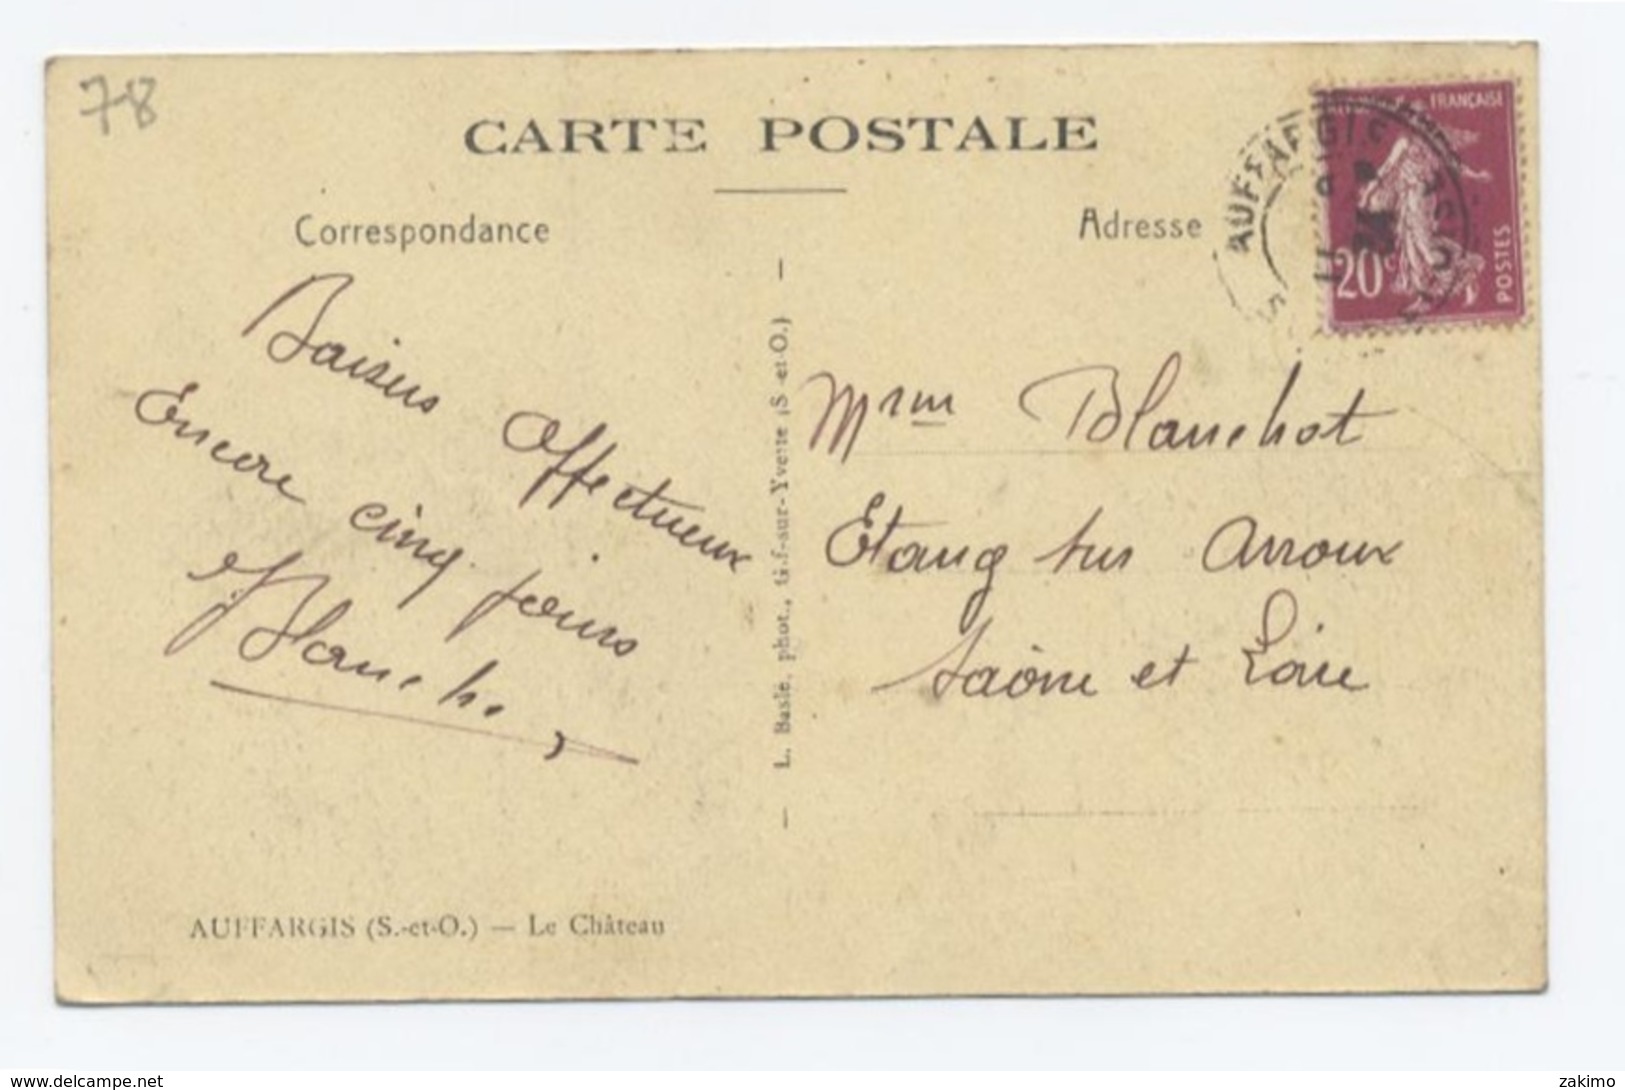 78
CARTE POSTALE
Correspondance
Adresse
FRANÇAISE
20c
POSTES
AUFFARGIS
Baisers Affectueux
Encore cinq jours
Blanche
Mme Blanchot
Etang sur Arroux
Saône et Loire
L. Basle, phot., Gif-sur-Yvette (S.-et-O.)
AUFFARGIS (S.-et-O.) — Le Château
www.delcampe.net
zakimo